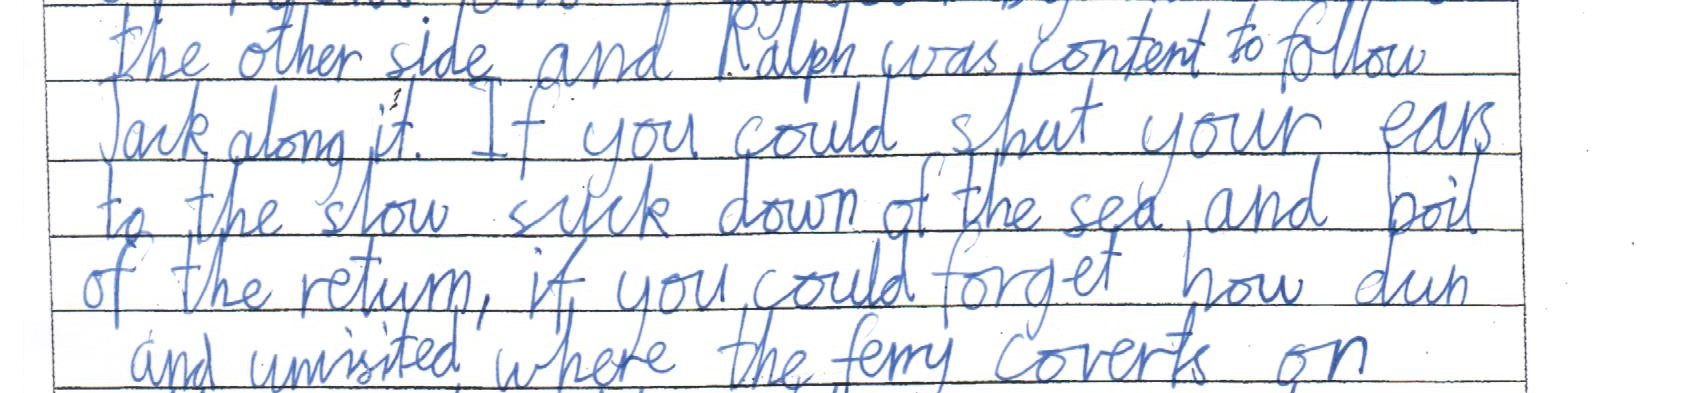 the other side and Ralph was content to follow
Jack along it. If you could shut your ears
to the slow suck down of the sea and boil
of the return, if you could forget how dun
and unvisited where the ferny coverts on